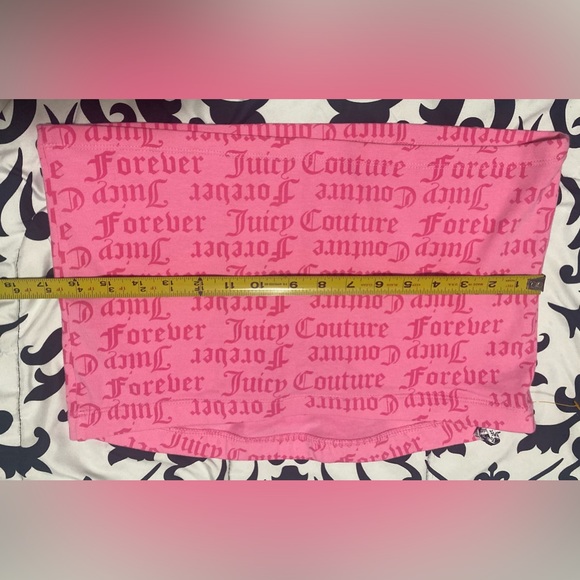 Juicy Couture Forever Juicy C
e Forever Juicy Couture Forever
Juicy Couture Forever Juicy C
e Forever Juicy Couture Forever
Juicy Couture Forever Juicy
18 17 16 15 14 13 11 10 9 8 7 6 5 4 3 2 1
Forever Juicy Couture Forever
Couture Forever Juicy
Forever Juicy Couture Forever
Couture Forever Juicy
Juicy Couture Forever